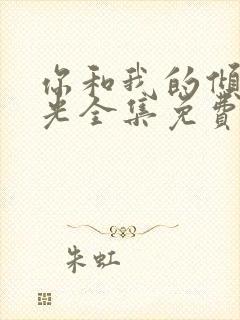 你和我的倾
光全集免费
朱虹